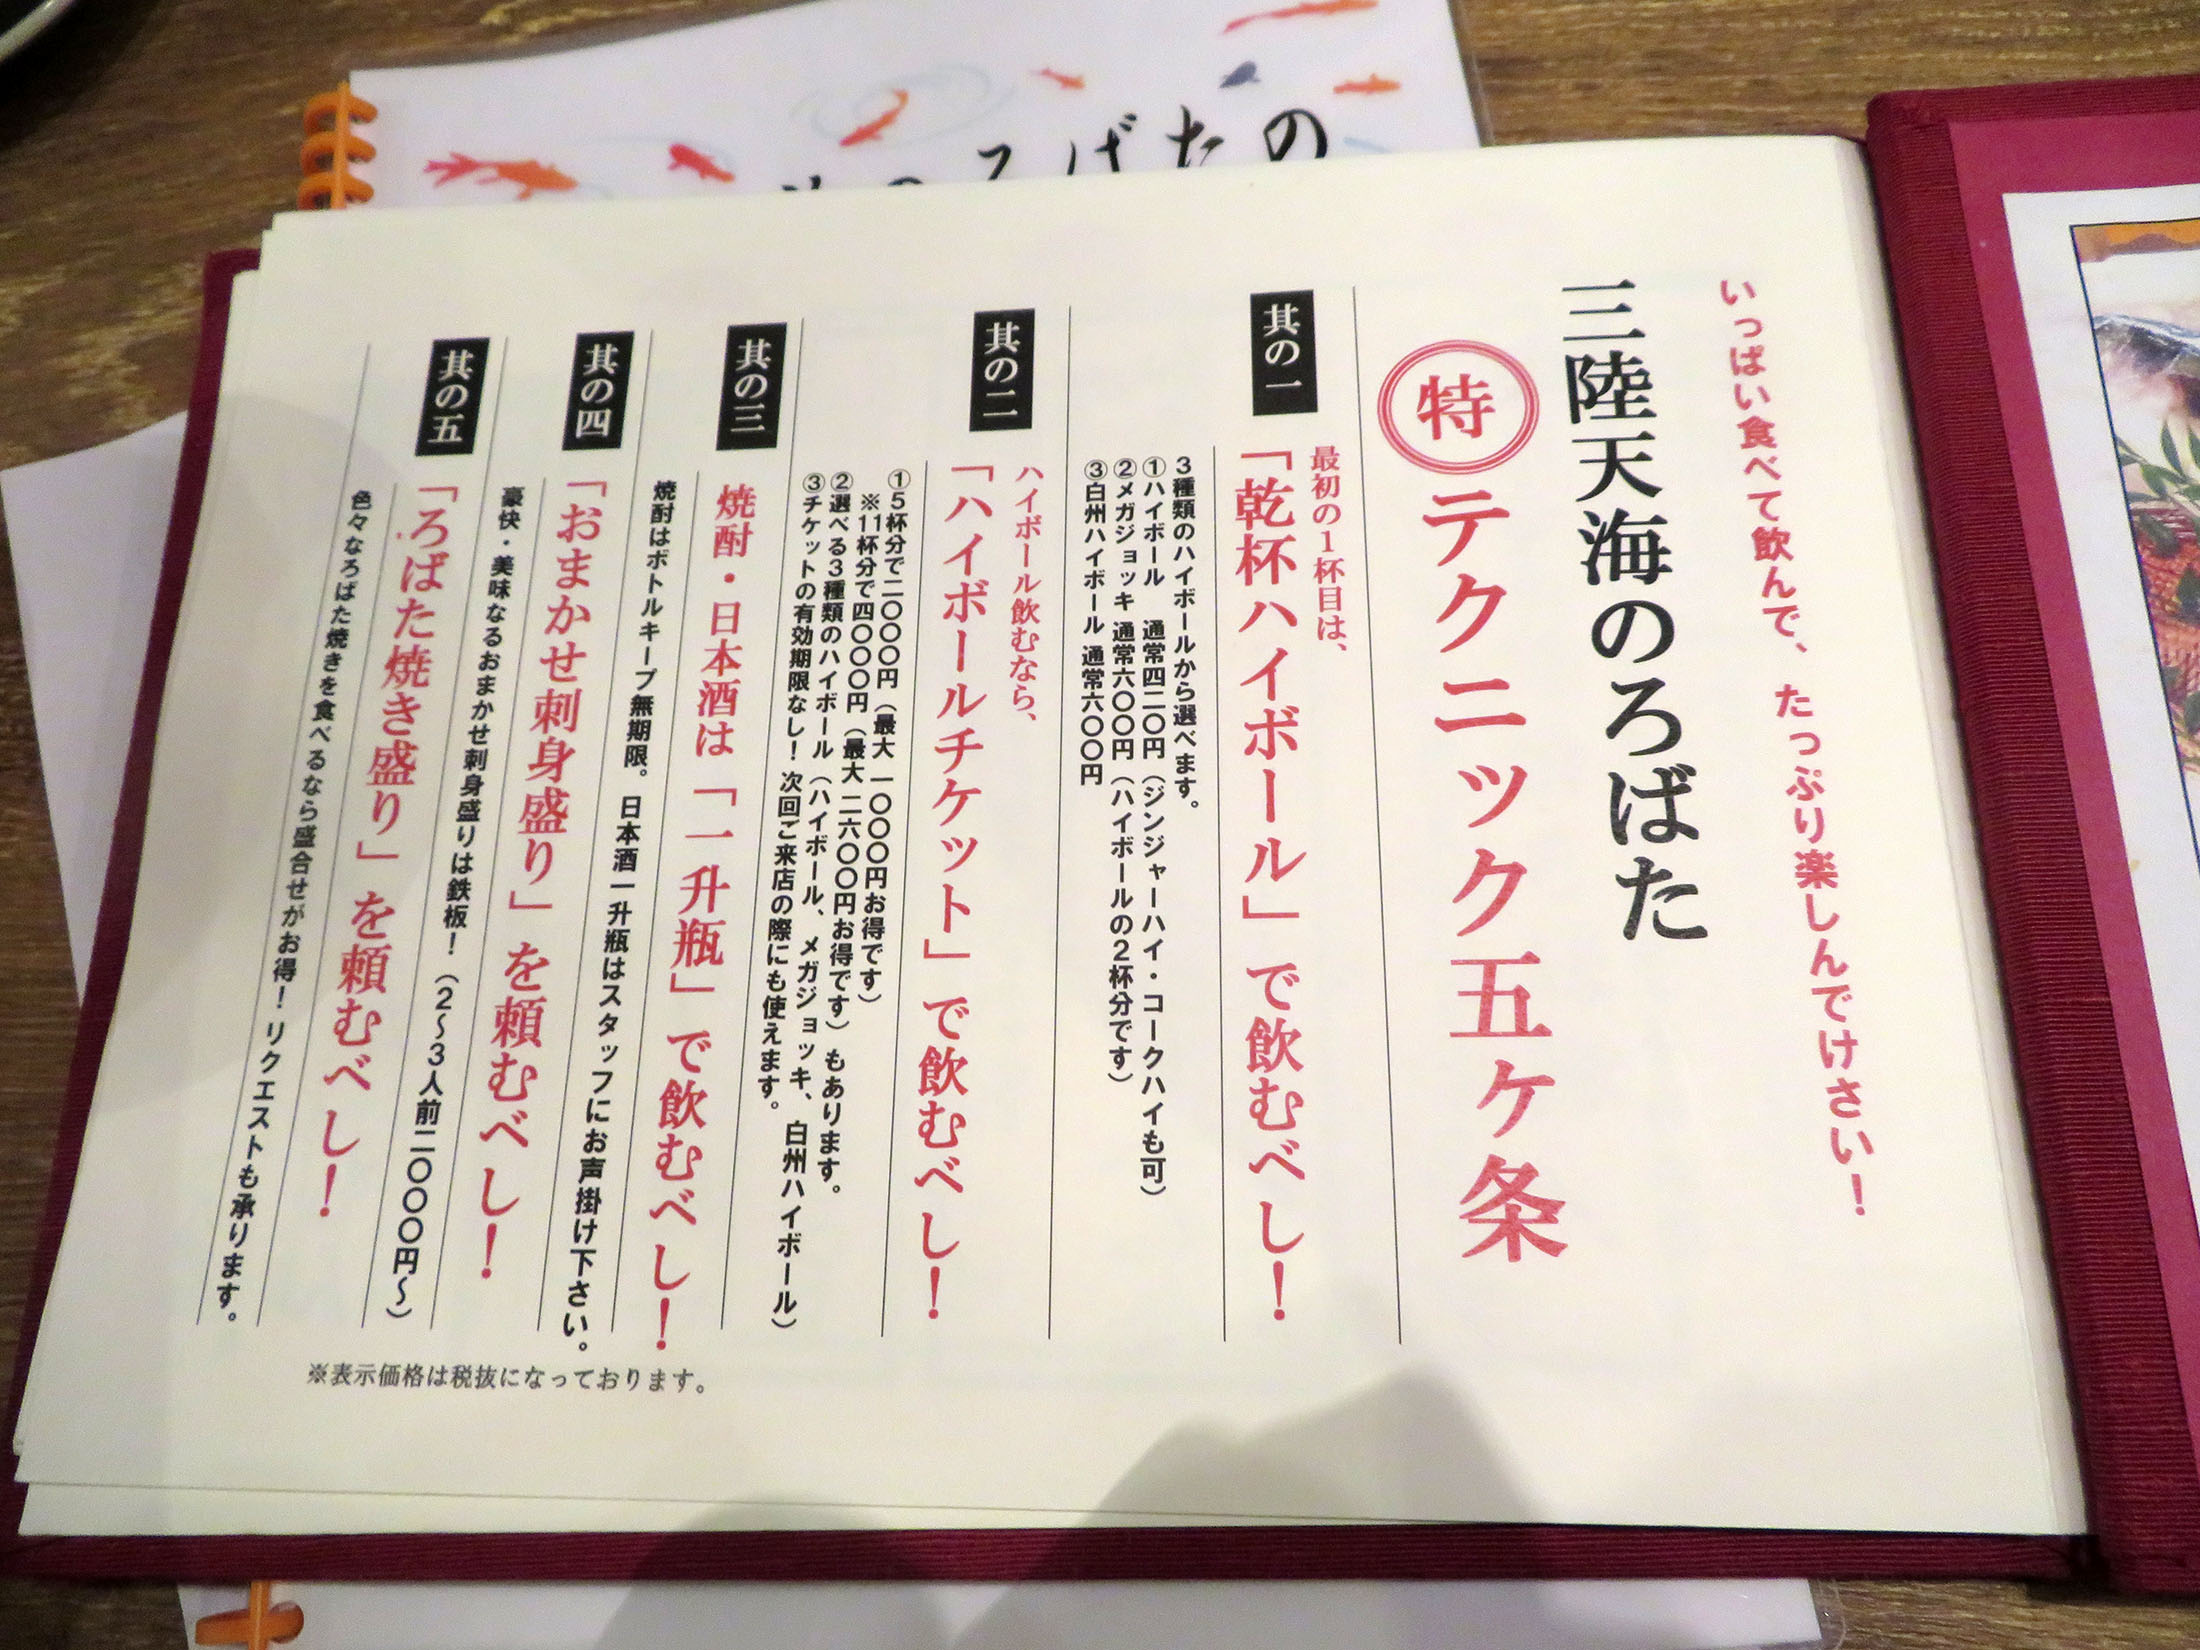 いっぱい食べて飲んで、たっぷり楽しんでけさい！
三陸天海のろばた
特 テクニック五ヶ条
其の一
最初の１杯目は、
「乾杯ハイボール」で飲むべし！
３種類のハイボールから選べます。
①ハイボール 通常四二〇円（ジンジャーハイ・コークハイも可）
②メガジョッキ 通常六〇〇円（ハイボールの２杯分です）
③白州ハイボール 通常六〇〇円
其の二
ハイボール飲むなら、
「ハイボールチケット」で飲むべし！
①５杯分で二〇〇〇円（最大 一〇〇〇円お得です）
※11杯分で四〇〇〇円（最大 二六〇〇円お得です）もあります。
②選べる３種類のハイボール（ハイボール、メガジョッキ、白州ハイボール）
③チケットの有効期限なし！次回ご来店の際にも使えます。
其の三
焼酎・日本酒は「一升瓶」で飲むべし！
焼酎はボトルキープ無期限。日本酒一升瓶はスタッフにお声掛け下さい。
其の四
「おまかせ刺身盛り」を頼むべし！
豪快・美味なるおまかせ刺身盛りは鉄板！（２〜３人前二〇〇〇円〜）
其の五
「ろばた焼き盛り」を頼むべし！
色々なろばた焼きを食べるなら盛合せがお得！リクエストも承ります。
※表示価格は税抜になっております。
ろばたの